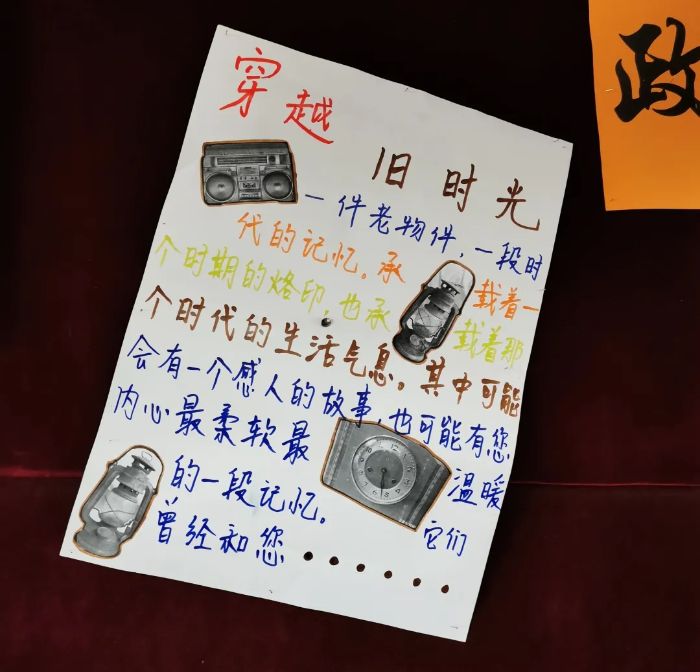 穿越
旧时光
一件老物件,一段时
代的记忆。承载着一
个时期的烙印,也承载着那
个时代的生活气息。其中可能
会有一个感人的故事,也可能有您
内心最柔软最温暖
的一段记忆。它们
曾经和您......
政